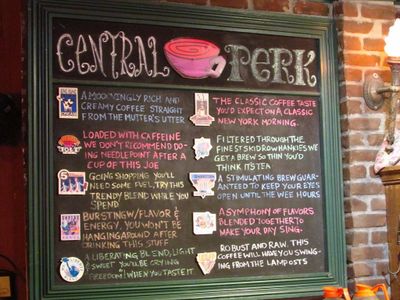 CENTRAL PERK
A MOO-VINGLY RICH AND
CREAMY COFFEE STRAIGHT
FROM THE MUTTER'S UTTER
LOADED WITH CAFFEINE
WE DON'T RECOMMEND DO-
ING NEEDLEPOINT AFTER A
CUP OF THIS JOE
GOING SHOPPING? YOU'LL
NEED SOME FUEL, TRY THIS
TRENDY BLEND WHILE YOU
SPEND
BURSTING W/FLAVOR &
ENERGY, YOU WON'T BE
HANGING AROUND AFTER
DRINKING THIS STUFF
A LIBERATING BLEND, LIGHT
& SWEET YOU'LL BE CRYING
FREEDOM! WHEN YOU TASTE IT
THE CLASSIC COFFEE TASTE
YOU'D EXPECT ON A CLASSIC
NEW YORK MORNING.
FILTERED THROUGH THE
FINEST SKIDROW HANKIES WE
GET A BREW SO THIN YOU'D
THINK IT'S TEA
A STIMULATING BREW GUAR-
ANTEED TO KEEP YOUR EYES
OPEN UNTIL THE WEE HOURS
A SYMPHONY OF FLAVORS
BLENDED TOGETHER TO
MAKE YOUR DAY SING.
ROBUST AND RAW THIS
COFFEE WILL HAVE YOU SWING-
ING FROM THE LAMPOSTS